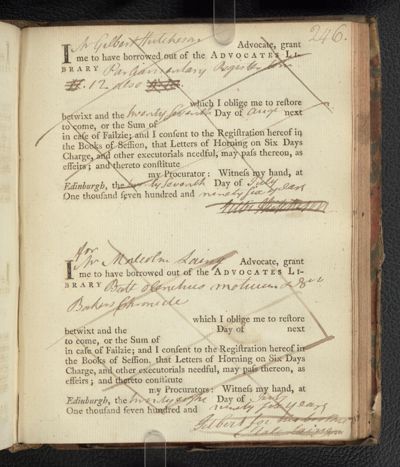 246.
I Mr Gilbert Hutcheson Advocate, grant
me to have borrowed out of the ADVOCATES LI-
BRARY Parliamentary Register
12. also
which I oblige me to restore
betwixt and the twenty seventh Day of Augt next
to come, or the Sum of
in case of Failzie; and I consent to the Registration hereof in
the Books of Session, that Letters of Horning on Six Days
Charge, and other executorials needful, may pass thereon, as
effeirs; and thereto constitute
my Procurator: Witness my hand, at
Edinburgh, the twenty seventh Day of July
One thousand seven hundred and ninety six years
for
I Mr Malcolm Laing Advocate, grant
me to have borrowed out of the ADVOCATES LI-
BRARY 8vo
Bakers Chronicle
which I oblige me to restore
betwixt and the Day of next
to come, or the Sum of
in case of Failzie; and I consent to the Registration hereof in
the Books of Session, that Letters of Horning on Six Days
Charge, and other executorials needful, may pass thereon, as
effeirs; and thereto constitute
my Procurators: Witness my hand, at
Edinburgh, the Day of July
One thousand seven hundred and ninety six years
for